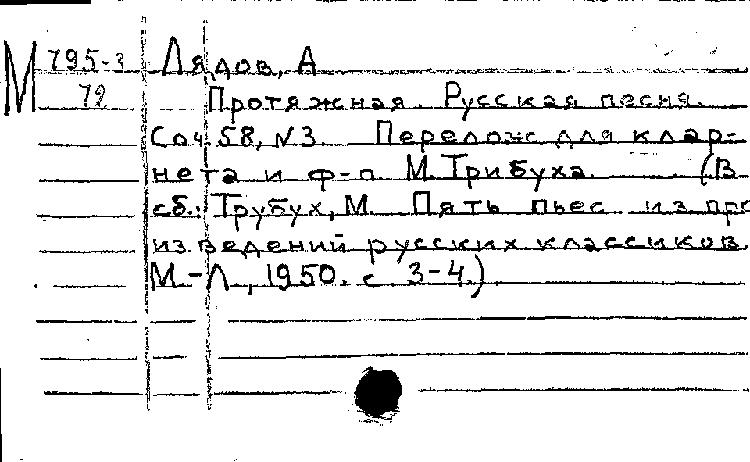 М 795-3 Лядов, А
79 Протяжная. Русская песня.
Соч. 58, N3. Перелож для клар-
нета и ф-п. М. Трибуха. (В
сб.: Трубух, М. Пять пьес из про
изведений русских классиков.
М.-Л., 1950. с. 3-4.)